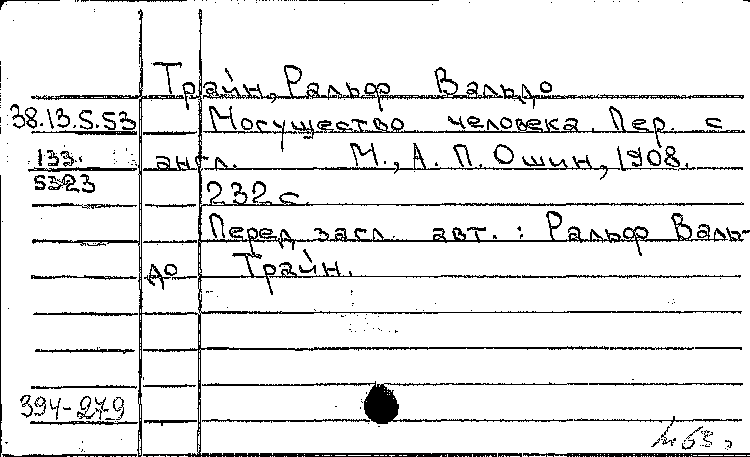 Трайн, Ральф Вальдо
38.13.5.53 Могущество человека. Пер. с
133. англ. М., А. П. Ошин, 1908.
5323 232 с.
Перед загл. авт.: Ральф Валь-
до Трайн.
394-279